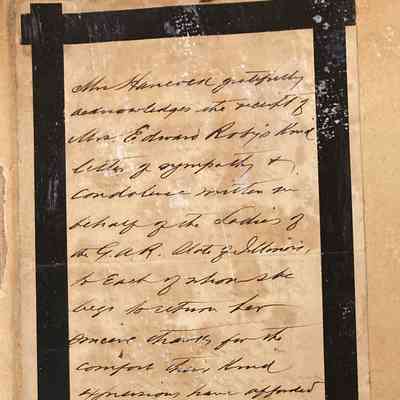 Mrs Hancock gratefully
acknowledges the receipt of
Mrs. Edward Roby's kind
letter of sympathy &
Condolence written in
behalf of the Ladies of
the G.A.R. State of Illinois,
to Each of whom she
begs to return her
sincere thanks for the
comfort their kind
expressions have afforded